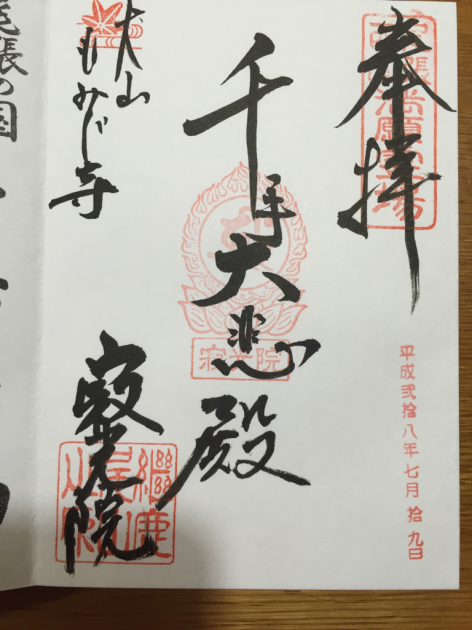 奉拝
平成弐拾八年七月拾九日
千手大悲殿
寂光院
犬山
もみじ寺
寂光院
繼鹿
尾張の国